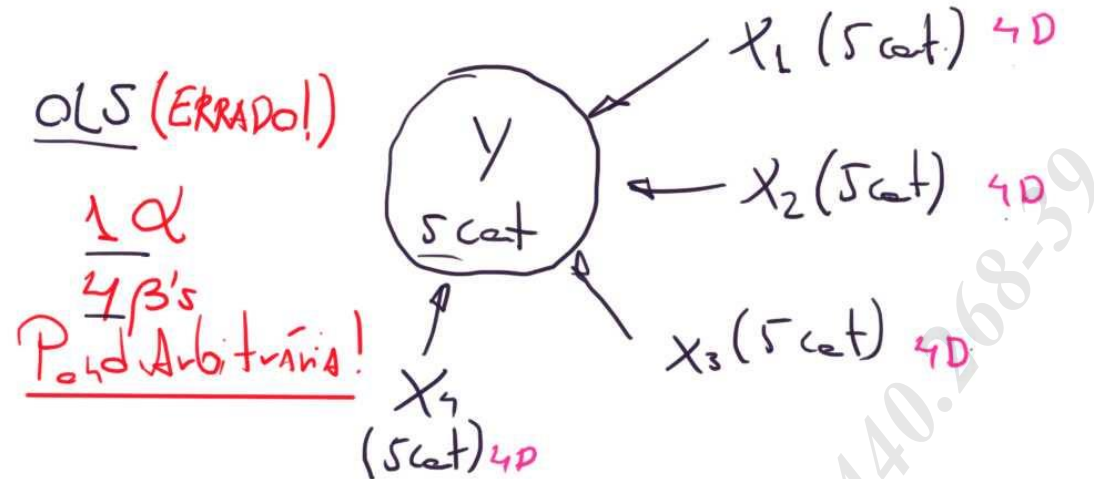 OLS (ERRADO!)
1 α
4 β's
Pond Arbitrária!
Y
5 cat
X1 (5 cat.) 4D
X2 (5 cat) 4D
X3 (5 cat) 4D
X4
(5 cat) 4D
40.268-39